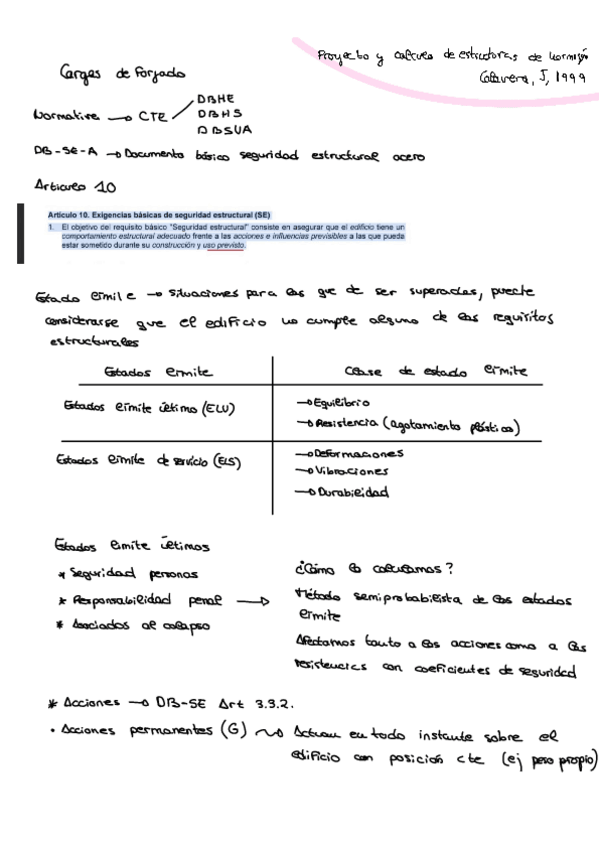 Proyecto y cálculo de estructuras de hormigón
Calavera, J, 1999
Cargas de Forjado
Normativa → CTE
DBHE
DBHS
DBSUA
DB-SE-A → Documento básico seguridad estructural acero
Artículo 10
Artículo 10. Exigencias básicas de seguridad estructural (SE)
1. El objetivo del requisito básico "Seguridad estructural" consiste en asegurar que el edificio tiene un
comportamiento estructural adecuado frente a las acciones e influencias previsibles a las que pueda
estar sometido durante su construcción y uso previsto.
Estado límite → Situaciones para las que de ser superadas, puede
considerarse que el edificio no cumple alguno de los requisitos
estructurales
Estados límite
Clase de estado límite
Estados límite último (ELU)
→ Equilibrio
→ Resistencia (agotamiento plástico)
Estados límite de servicio (ELS)
→ Deformaciones
→ Vibraciones
→ Durabilidad
Estados límite últimos
* Seguridad personas
* Responsabilidad penal →
* Asociados al colapso
¿Cómo lo calculamos?
Método semiprobabilista de los estados
límite
Afectamos tanto a las acciones como a las
resistencias con coeficientes de seguridad
* Acciones → DB-SE Art 3.3.2.
• Acciones permanentes (G) → Actúan en todo instante sobre el
edificio con posición cte (ej peso propio)